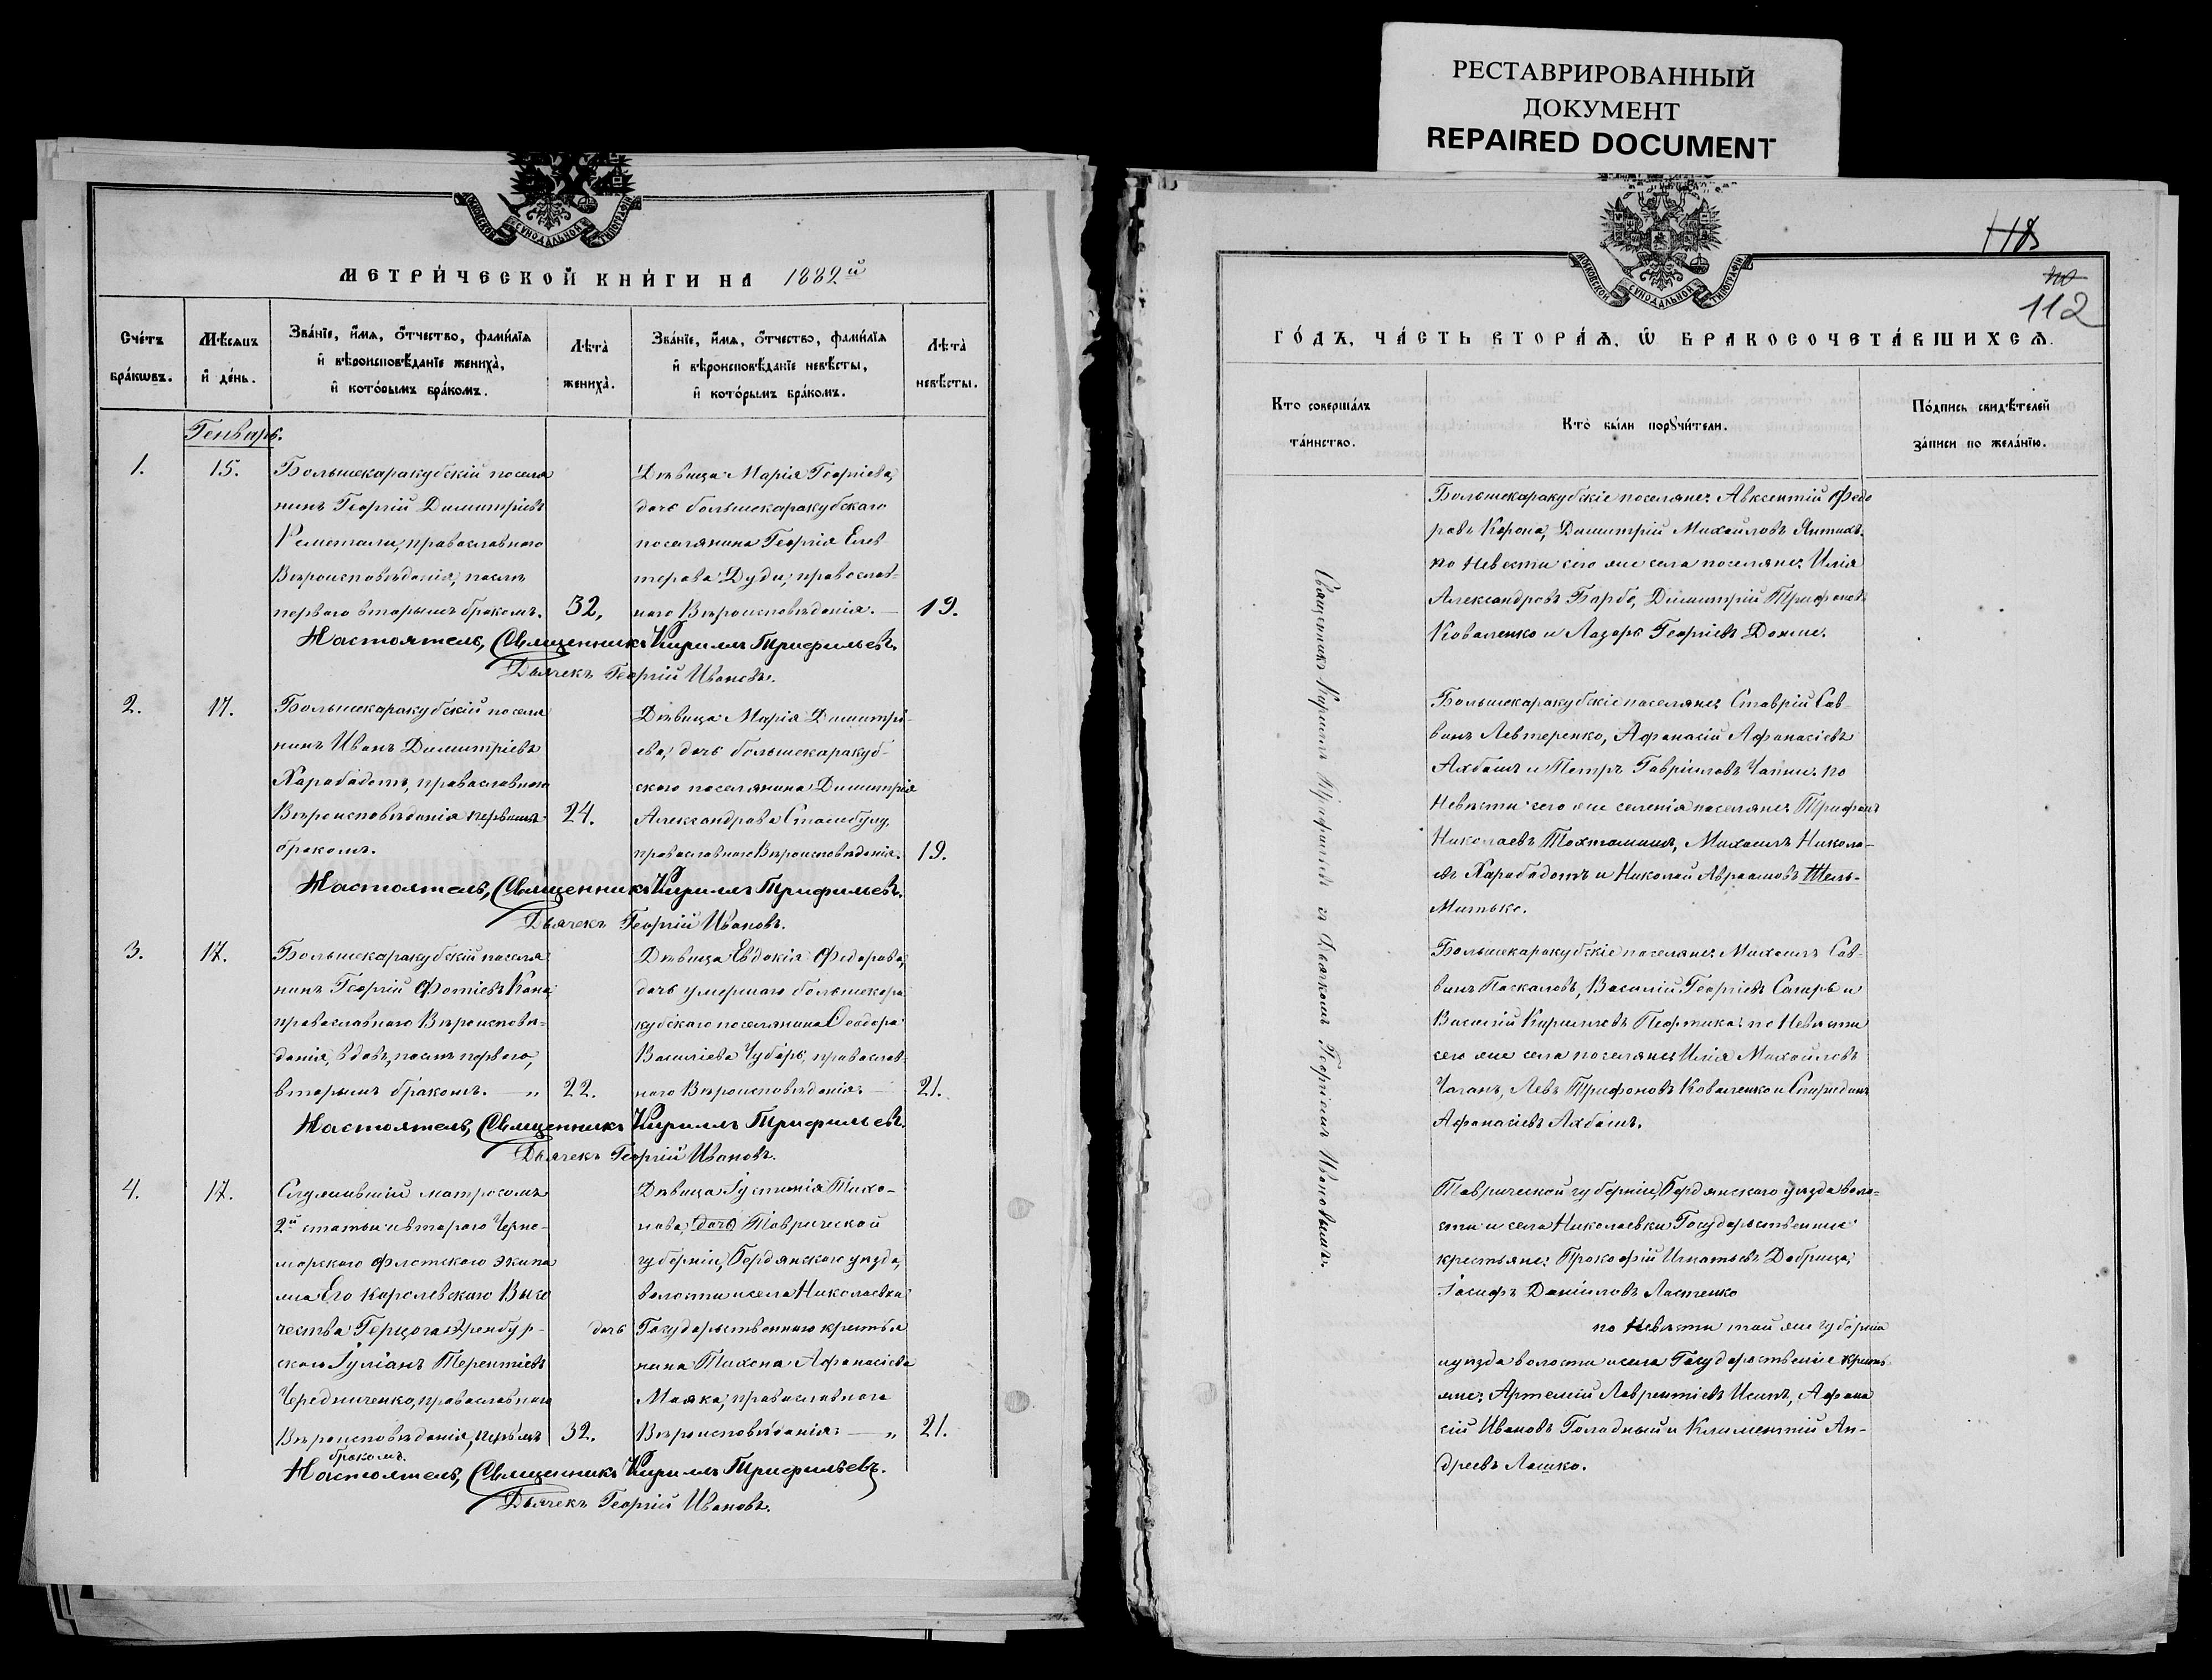 РЕСТАВРИРОВАННЫЙ
ДОКУМЕНТ
REPAIRED DOCUMENT
МОСКОВСКОЙ СѴНОДАЛЬНОЙ ТИПОГРАФІИ
МЕТРИ́ЧЕСКОЙ КНИ́ГИ НА 1882й
Сче́тъ
бра́кѡвъ.
Мѣ́сяцъ
и҆ де́нь.
Зва́нїе, и҆́мѧ, ѻ҆́тчество, фами́лїѧ
и҆ вѣроисповѣ́данїе жениха̀,
и҆ кото́рымъ бра́комъ.
Лѣ́та
жениха̀.
Зва́нїе, и҆́мѧ, ѻ҆́тчество, фами́лїѧ
и҆ вѣроисповѣ́данїе невѣ́сты,
и҆ кото́рымъ бра́комъ.
Лѣ́та
невѣ́сты.
Генварь.
1.
15.
Большекаракубскій поселя
нинъ Георгій Димитріевъ
православнаго
Вѣроисповѣданія, послѣ
перваго вторымъ бракомъ.
32,
Дѣвица Марія Георгіева,
дочь большекаракубскаго
поселянина Георгія Елев-
терова Дуди, православ-
наго Вѣроисповѣданія. —
19.
Настоятель, Священникъ Кириллъ Трифильевъ.
Дьячекъ Георгій Ивановъ.
2.
17.
Большекаракубскій поселя
нинъ Иванъ Димитріевъ
Харабадотъ, православнаго
Вѣроисповѣданія первымъ
бракомъ.
24.
Дѣвица Марія Димитрі-
ева, дочь большекаракуб-
скаго поселянина Димитрія
Александрова Стамбулу,
православнаго Вѣроисповѣданія.
19.
Настоятель, Священникъ Кириллъ Трифильевъ.
Дьячекъ Георгій Ивановъ.
3.
17.
Большекаракубскій поселя
нинъ Георгій Фотіевъ Кана
православнаго Вѣроисповѣ-
данія, вдовъ, послѣ перваго,
вторымъ бракомъ. — „
22.
Дѣвица Евдокія Федорова,
дочь умершаго большекара
кубскаго поселянина Ѳеодора
Василіева Чубарь, православ-
наго Вѣроисповѣданія. —
21.
Настоятель, Священникъ Кириллъ Трифильевъ.
Дьячекъ Георгій Ивановъ.
4.
17.
Служившій матросомъ
2й статьи втораго Черно-
морскаго флотскаго экипа
жа Его Королевскаго Высо
чества Герцога Эдинбур-
скаго Іуліанъ Терентіевъ
Чередниченко, православнаго
Вѣроисповѣданія, первымъ
бракомъ.
32.
Дѣвица Іустинія Тихо-
нова, дочь Таврической
губерніи, Бердянскаго уѣзда,
волости и села Николаевки
дочь Государственнаго крестья
нина Тихона Афанасіева
Маяка, православнаго
Вѣроисповѣданія: — „
21.
Настоятель, Священникъ Кириллъ Трифильевъ.
Дьячекъ Георгій Ивановъ.
МОСКОВСКОЙ СѴНОДАЛЬНОЙ ТИПОГРАФІИ
112
ГО́ДЪ, ЧА́СТЬ ВТОРА́Ѧ, Ѡ҆ БРАКОСОЧЕТА́ВШИХСѦ.
Кто̀ соверша́лъ
та́инство.
Кто̀ бы́ли порꙋчи́тели.
По́дпись свидѣ́телей
за́писи по жела́нїю.
Священникъ Кириллъ Трифильевъ и Дьячкомъ Георгіемъ Ивановымъ.
Большекаракубскіе поселяне: Авксентій Федо
ровъ Корона, Димитрій Михайловъ
по Невѣсти сего же села поселяне: Илія
Александровъ Барбо, Димитрій Трифоновъ
Коваленко и Лазарь Георгіевъ
Большекаракубскіе поселяне: Ставрій Сав-
винъ Левтеренко, Афанасій Афанасіевъ
Ахбашъ и Петръ Гавріиловъ по
Невѣсти сего же селенія поселяне: Трифонъ
Николаевъ Тохтамышъ, Михаилъ Никола-
евъ Харабадотъ и Николай Авраамовъ Шель-
Митько.
Большекаракубскіе поселяне: Михаилъ Сав-
винъ Паскаловъ, Василій Георгіевъ Сагирь и
Василій Кирилловъ по Невѣсти
сего же села поселяне: Илія Михайловъ
Чаганъ, Левъ Трифоновъ Коваленко и Спиридонъ
Афанасіевъ Ахбашъ.
Таврической губерніи, Бердянскаго уѣзда воло-
сти и села Николаевки Государственные
крестьяне: Прокофій Игнатьевъ Добрица,
Іосифъ Даніиловъ Ластенко
по Невѣсти той же губерніи
и уѣзда волости и села Государственіе кресть
яне: Артемій Лаврентіевъ Исипъ, Афана
сій Ивановъ Голодный и Климентій Ан-
дреевъ Лашко.